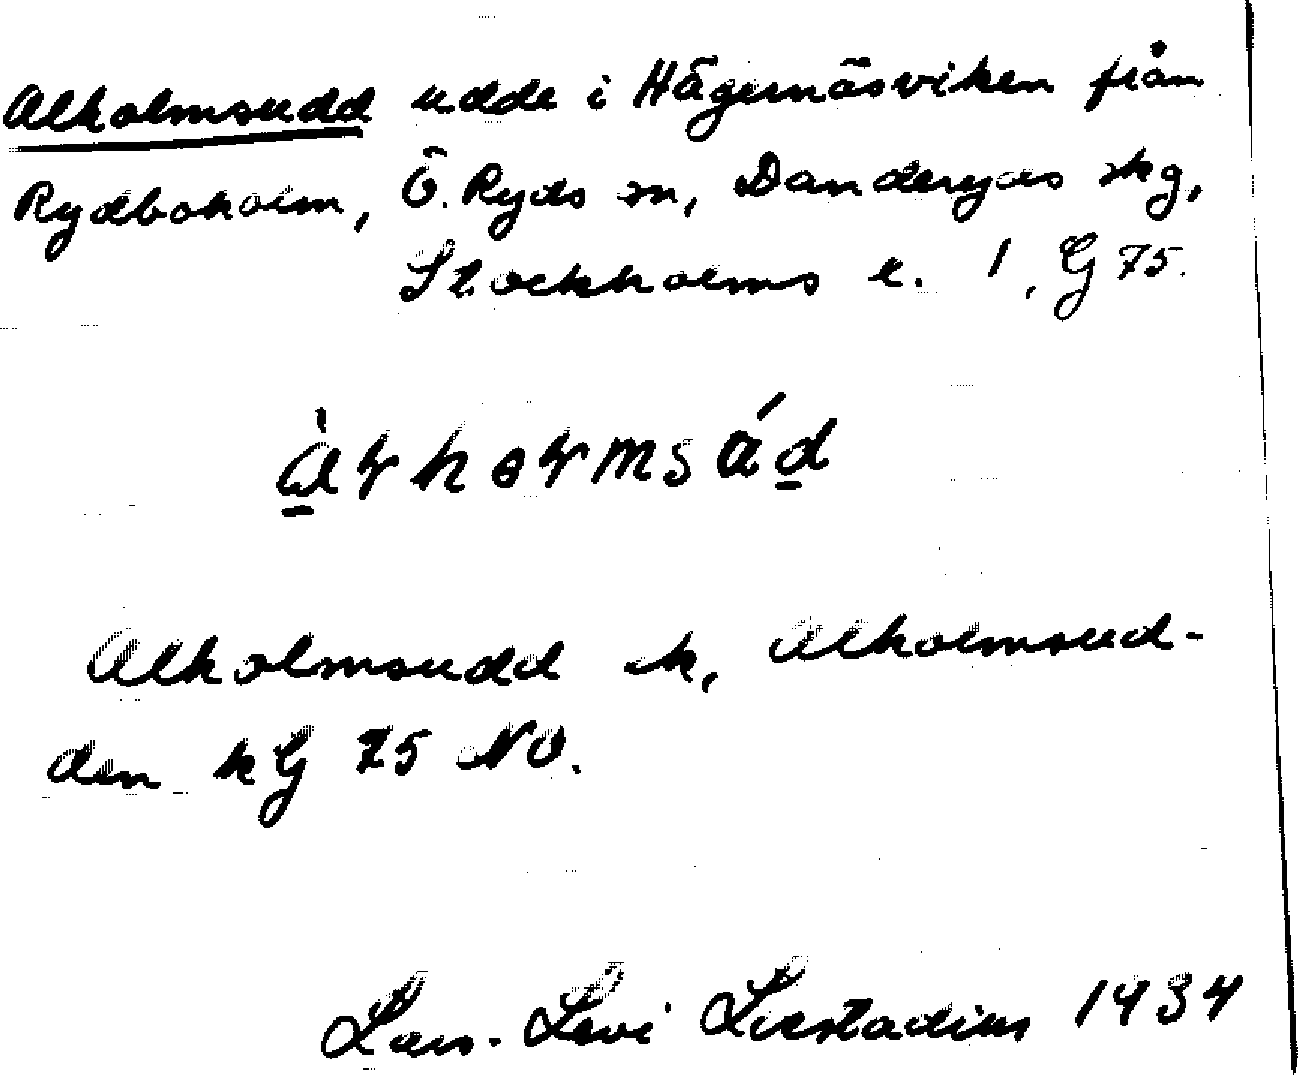 Alholmsudd udde i Hägernäsviken från
Rydboholm, Ö. Ryds sn, Danderyds skg,
Stockholms l. 1, G 75.
Alholmsudd ek, Alholmsud-
den kG 75 NO.
Lars-Levi Læstadius 1934